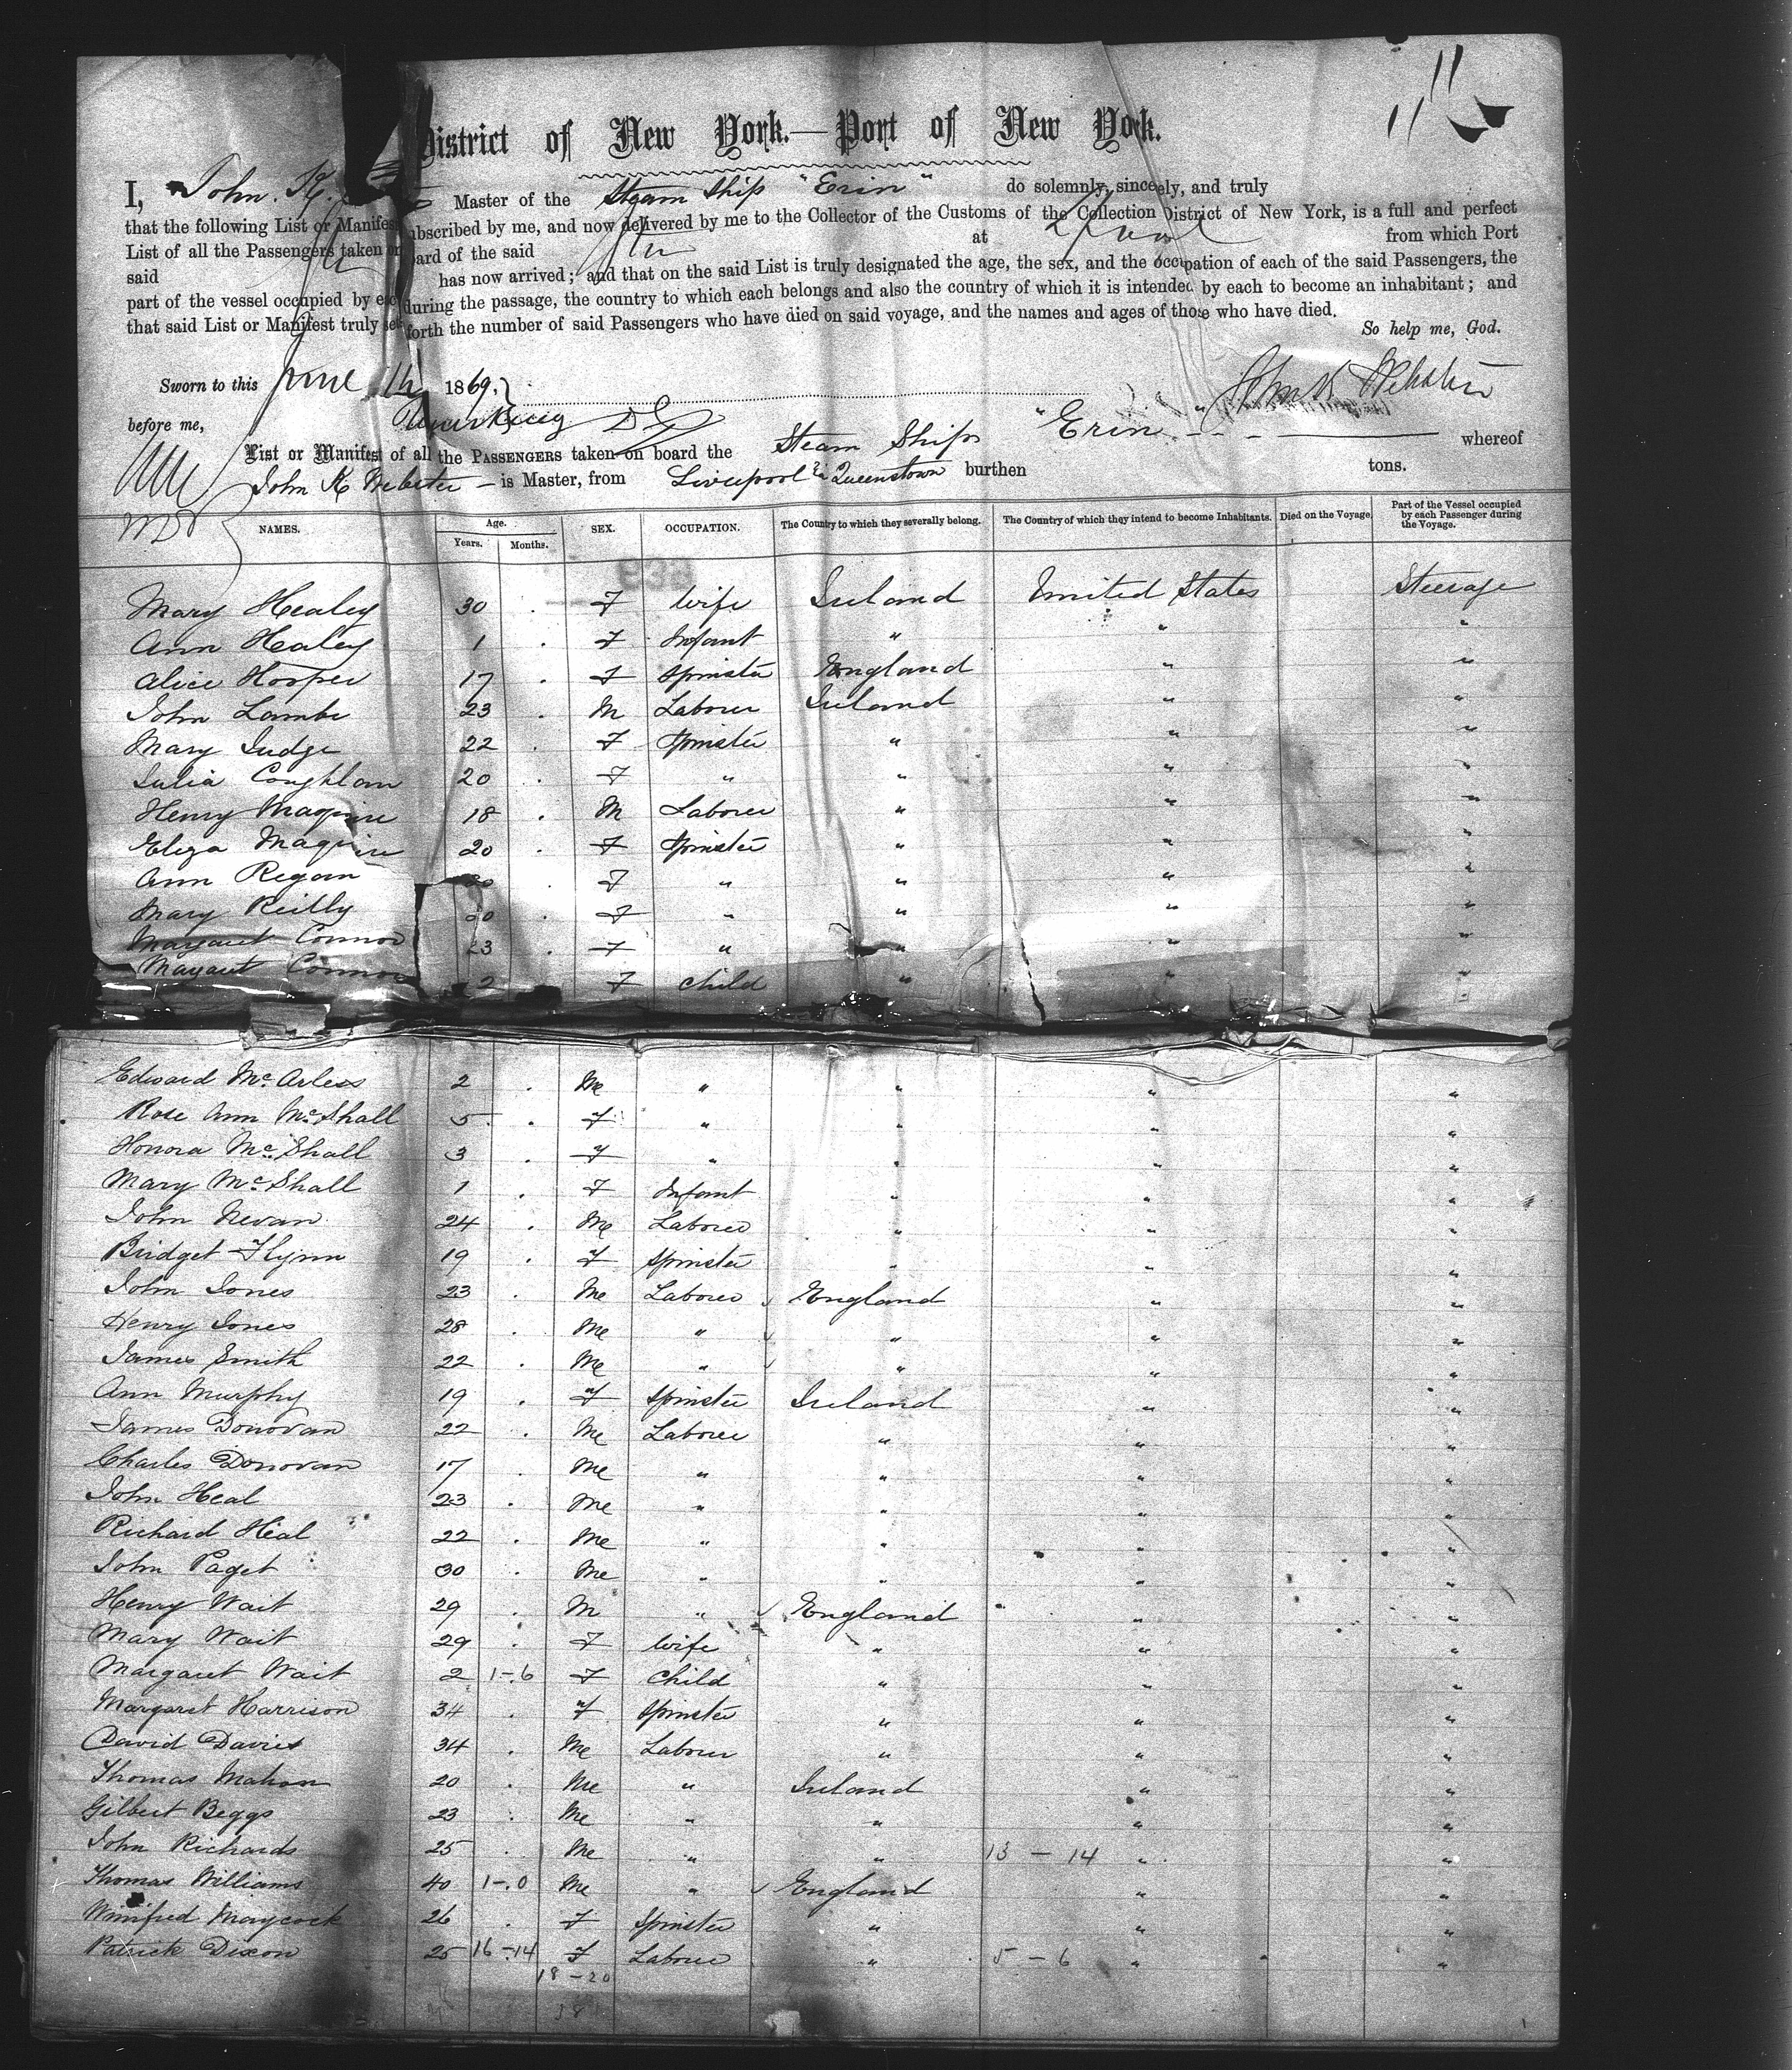 District of New York.—Port of New York.
I, John. K. Master of the Steam Ship "Erin" do solemnly, sincerely, and truly
that the following List or Manifest subscribed by me, and now delivered by me to the Collector of the Customs of the Collection District of New York, is a full and perfect
List of all the Passengers taken on board of the said at L'pool from which Port
said has now arrived; and that on the said List is truly designated the age, the sex, and the occupation of each of the said Passengers, the
part of the vessel occupied by each during the passage, the country to which each belongs and also the country of which it is intended by each to become an inhabitant; and
that said List or Manifest truly sets forth the number of said Passengers who have died on said voyage, and the names and ages of those who have died.
So help me, God.
Sworn to this June 14 1869. John K Webster
before me,
List or Manifest of all the PASSENGERS taken on board the Steam Ship "Erin" whereof
John K Webster is Master, from Liverpool & Queenstown burthen tons.
NAMES. Age. Years. Months. SEX. OCCUPATION. The Country to which they severally belong. The Country of which they intend to become Inhabitants. Died on the Voyage. Part of the Vessel occupied by each Passenger during the Voyage.
938
Mary Healey 30 . F Wife Ireland United States Steerage
Ann Healey 1 . F Infant " " "
Alice Hooper 17 . F Spinster England " "
John Lambe 23 . M Laborer Ireland " "
Mary Judge 22 . F Spinster " " "
Julia Coughlan 20 . F " " " "
Henry Maguire 18 . M Laborer " " "
Eliza Maguire 20 . F Spinster " " "
Ann Regan . F " " " "
Mary Reilly 20 . F " " " "
Margaret Connor 23 . F " " " "
Margaret Connor 2 F child " " "
Edward McArless 2 . Me " " " "
Rose Ann McShall 5 . F " " " "
Honora McShall 3 . F " " " "
Mary McShall 1 . F Infant " " "
John Nevan 24 . Me Laborer " " "
Bridget Flynn 19 . F Spinster " " "
John Jones 23 . Me Laborer England " "
Henry Jones 28 . Me " " " "
James Smith 22 . Me " " " "
Ann Murphy 19 . F Spinster Ireland " "
James Donovan 22 . Me Laborer " " "
Charles Donovan 17 . Me " " " "
John Heal 23 . Me " " " "
Richard Heal 22 . Me " " " "
John Paget 30 . Me " " " "
Henry Wait 29 . M " England " "
Mary Wait 29 . F Wife " " "
Margaret Wait 2 1-6 F Child " " "
Margaret Harrison 34 . F Spinster " " "
David Davies 34 . Me Laborer " " "
Thomas Mahon 20 . Me " Ireland " "
Gilbert Beggs 23 . Me " " " "
John Richards 25 . Me " " 13 - 14 " "
Thomas Williams 40 1-0 Me " England " "
Winifred Maycock 26 . F Spinster " " "
Patrick Dixon 25 16-14 F Laborer " 5 - 6 " "
18-20
38